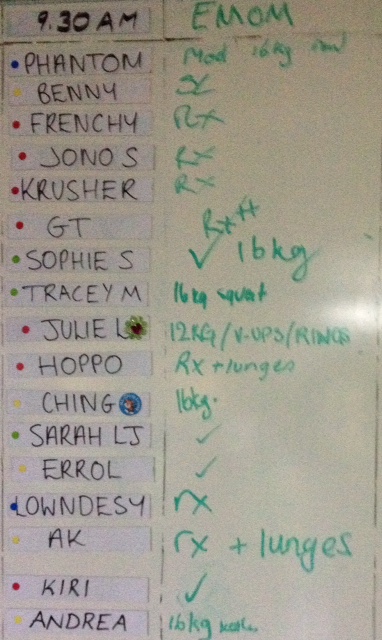 9.30 AM EMOM
PHANTOM Mod 16kg
BENNY SC
FRENCHY Rx
JONO S RX
KRUSHER RX
GT Rx++
SOPHIE S ✓ 16kg
TRACEY M 16kg squat
JULIE L 12KG/V-UPS/RINGS
HOPPO Rx + lunges
CHING 16kg.
SARAH LJ ✓
ERROL ✓
LOWNDESY rx
AK rx + lunges
KIRI ✓
ANDREA 16kg